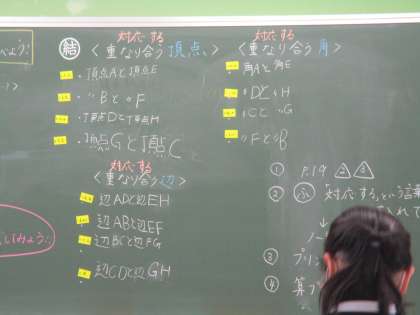 べよう
結
対応する
<重なり合う頂点>
・頂点Aと頂点E
・〃Bと〃F
・頂点Dと頂点H
・頂点Gと頂点C
対応する
<重なり合う辺>
・辺ADと辺EH
辺ABと辺EF
辺BCと辺FG
辺CDと辺GH
対応する
<重なり合う角>
・角Aと角E
・〃Dと〃H
・〃Cと〃G
・〃Fと〃B
① P.19 △2 △3
② ふ 「対応する」という言葉
入れて
③ プリン
④ 算
してみよう